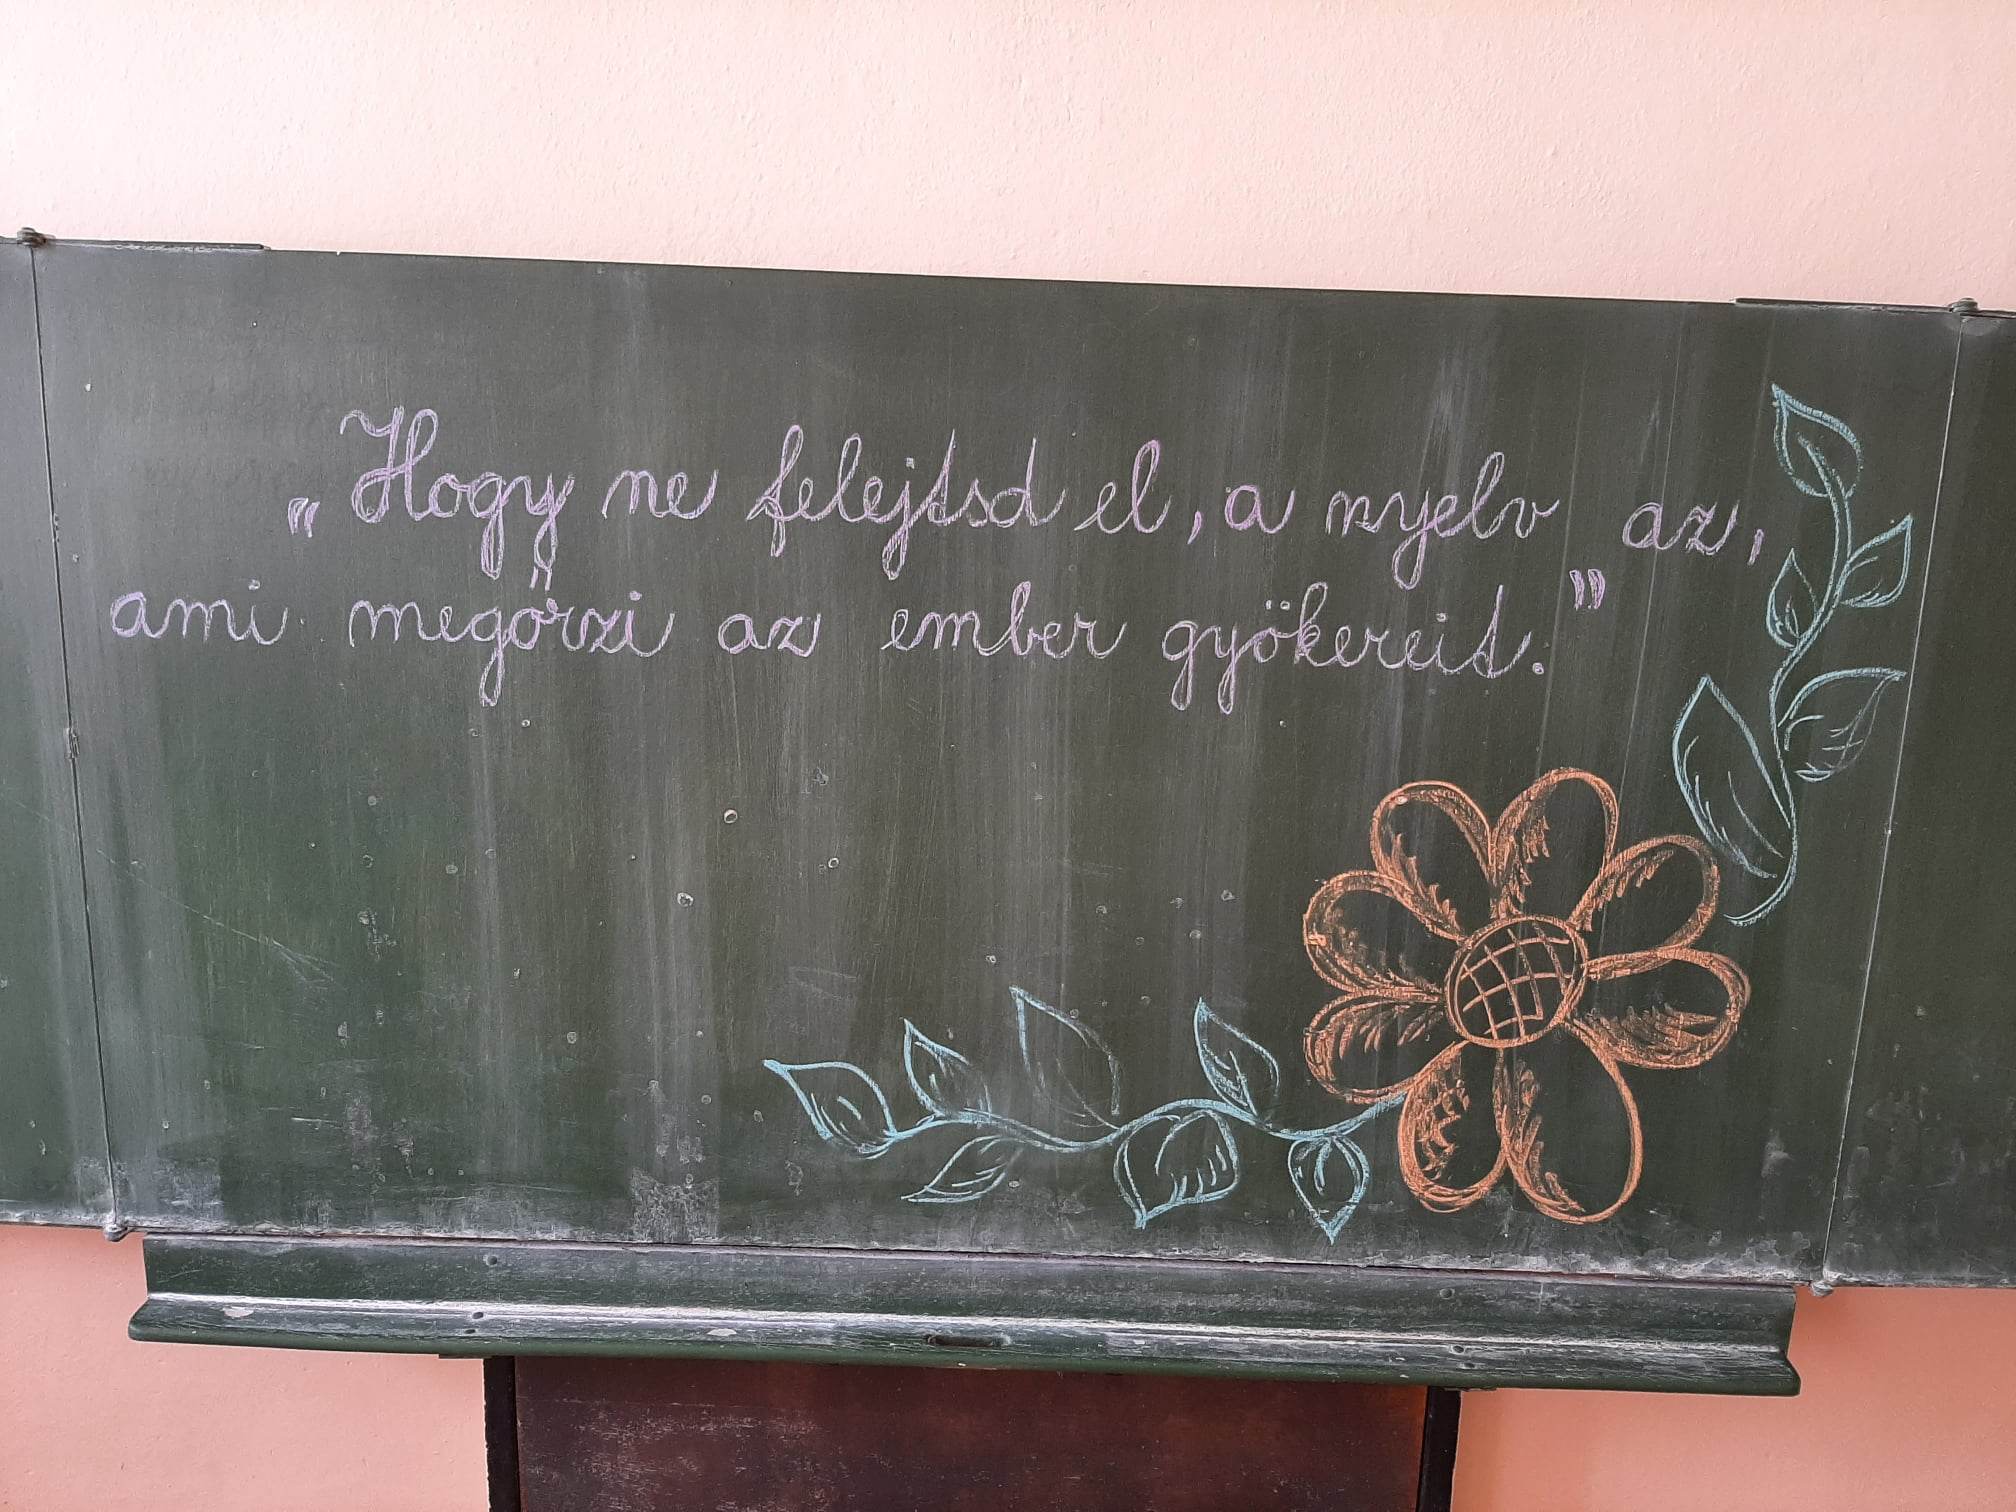 „Hogy ne felejtsd el, a nyelv az,
ami megőrzi az ember gyökereit.”